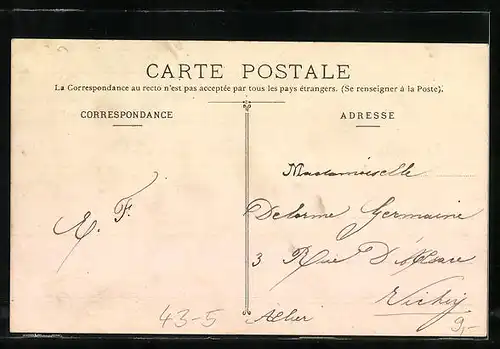 CARTE POSTALE
La Correspondance au recto n'est pas acceptée par tous les pays étrangers. (Se renseigner à la Poste).
CORRESPONDANCE
ADRESSE
Mademoiselle
Delorme Germaine
3 Rue D'Alsace
Vichy
Allier
E. F.
43-5
9,-